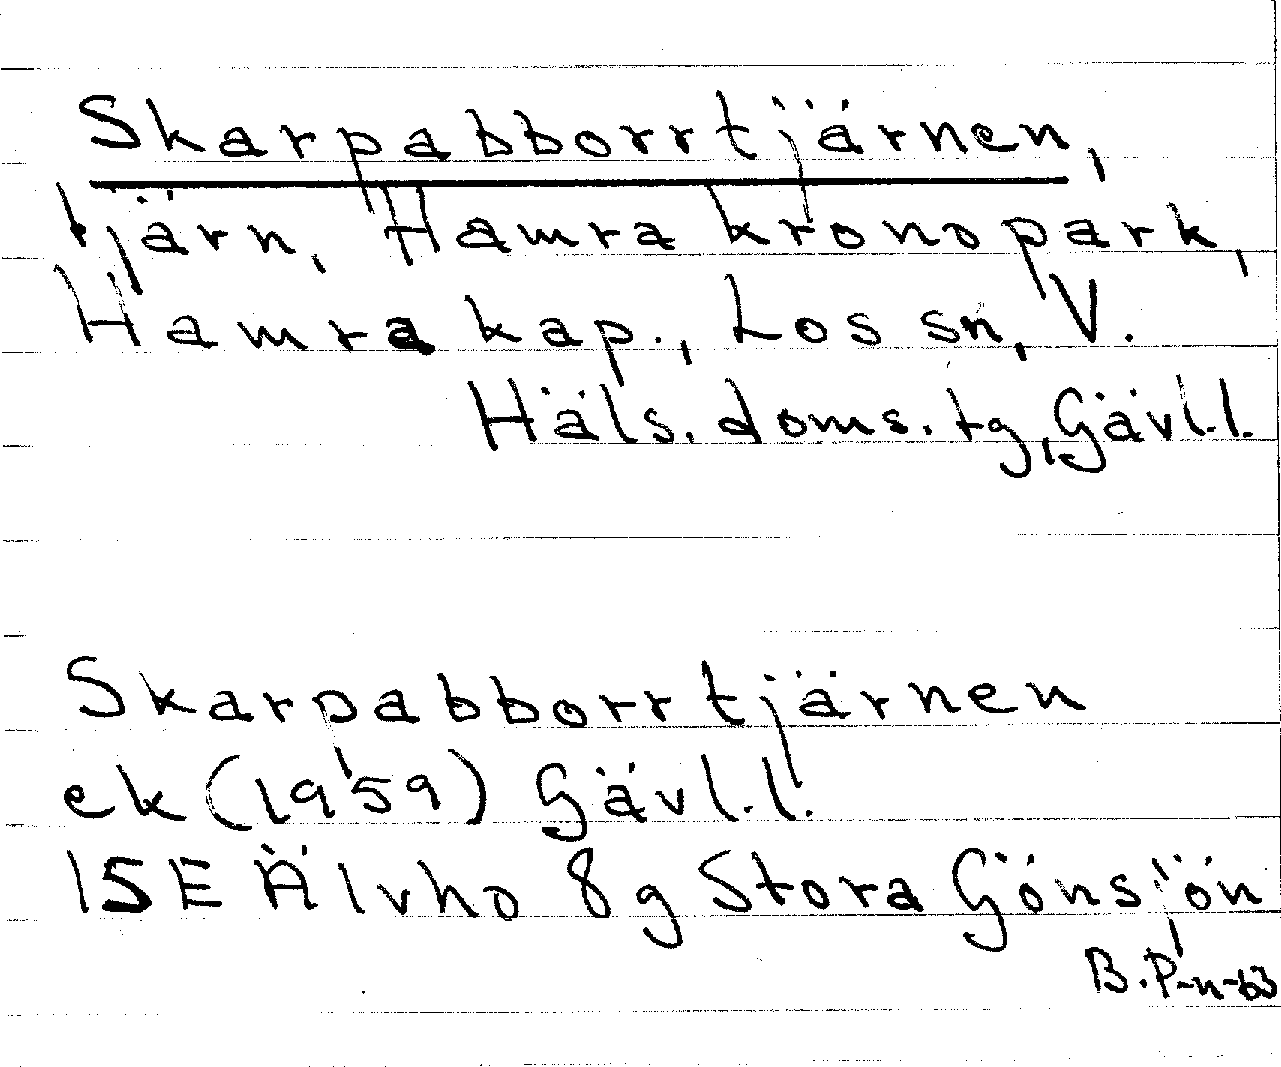 Skarpabborrtjärnen,
tjärn, Hamra kronopark,
Hamra kap., Los sn, V.
Häls. doms. tg, Gävl.l.
Skarpabborrtjärnen
ek (1959) Gävl.l.
15E Älvho 8g Stora Gönsjön
B.P-n-63